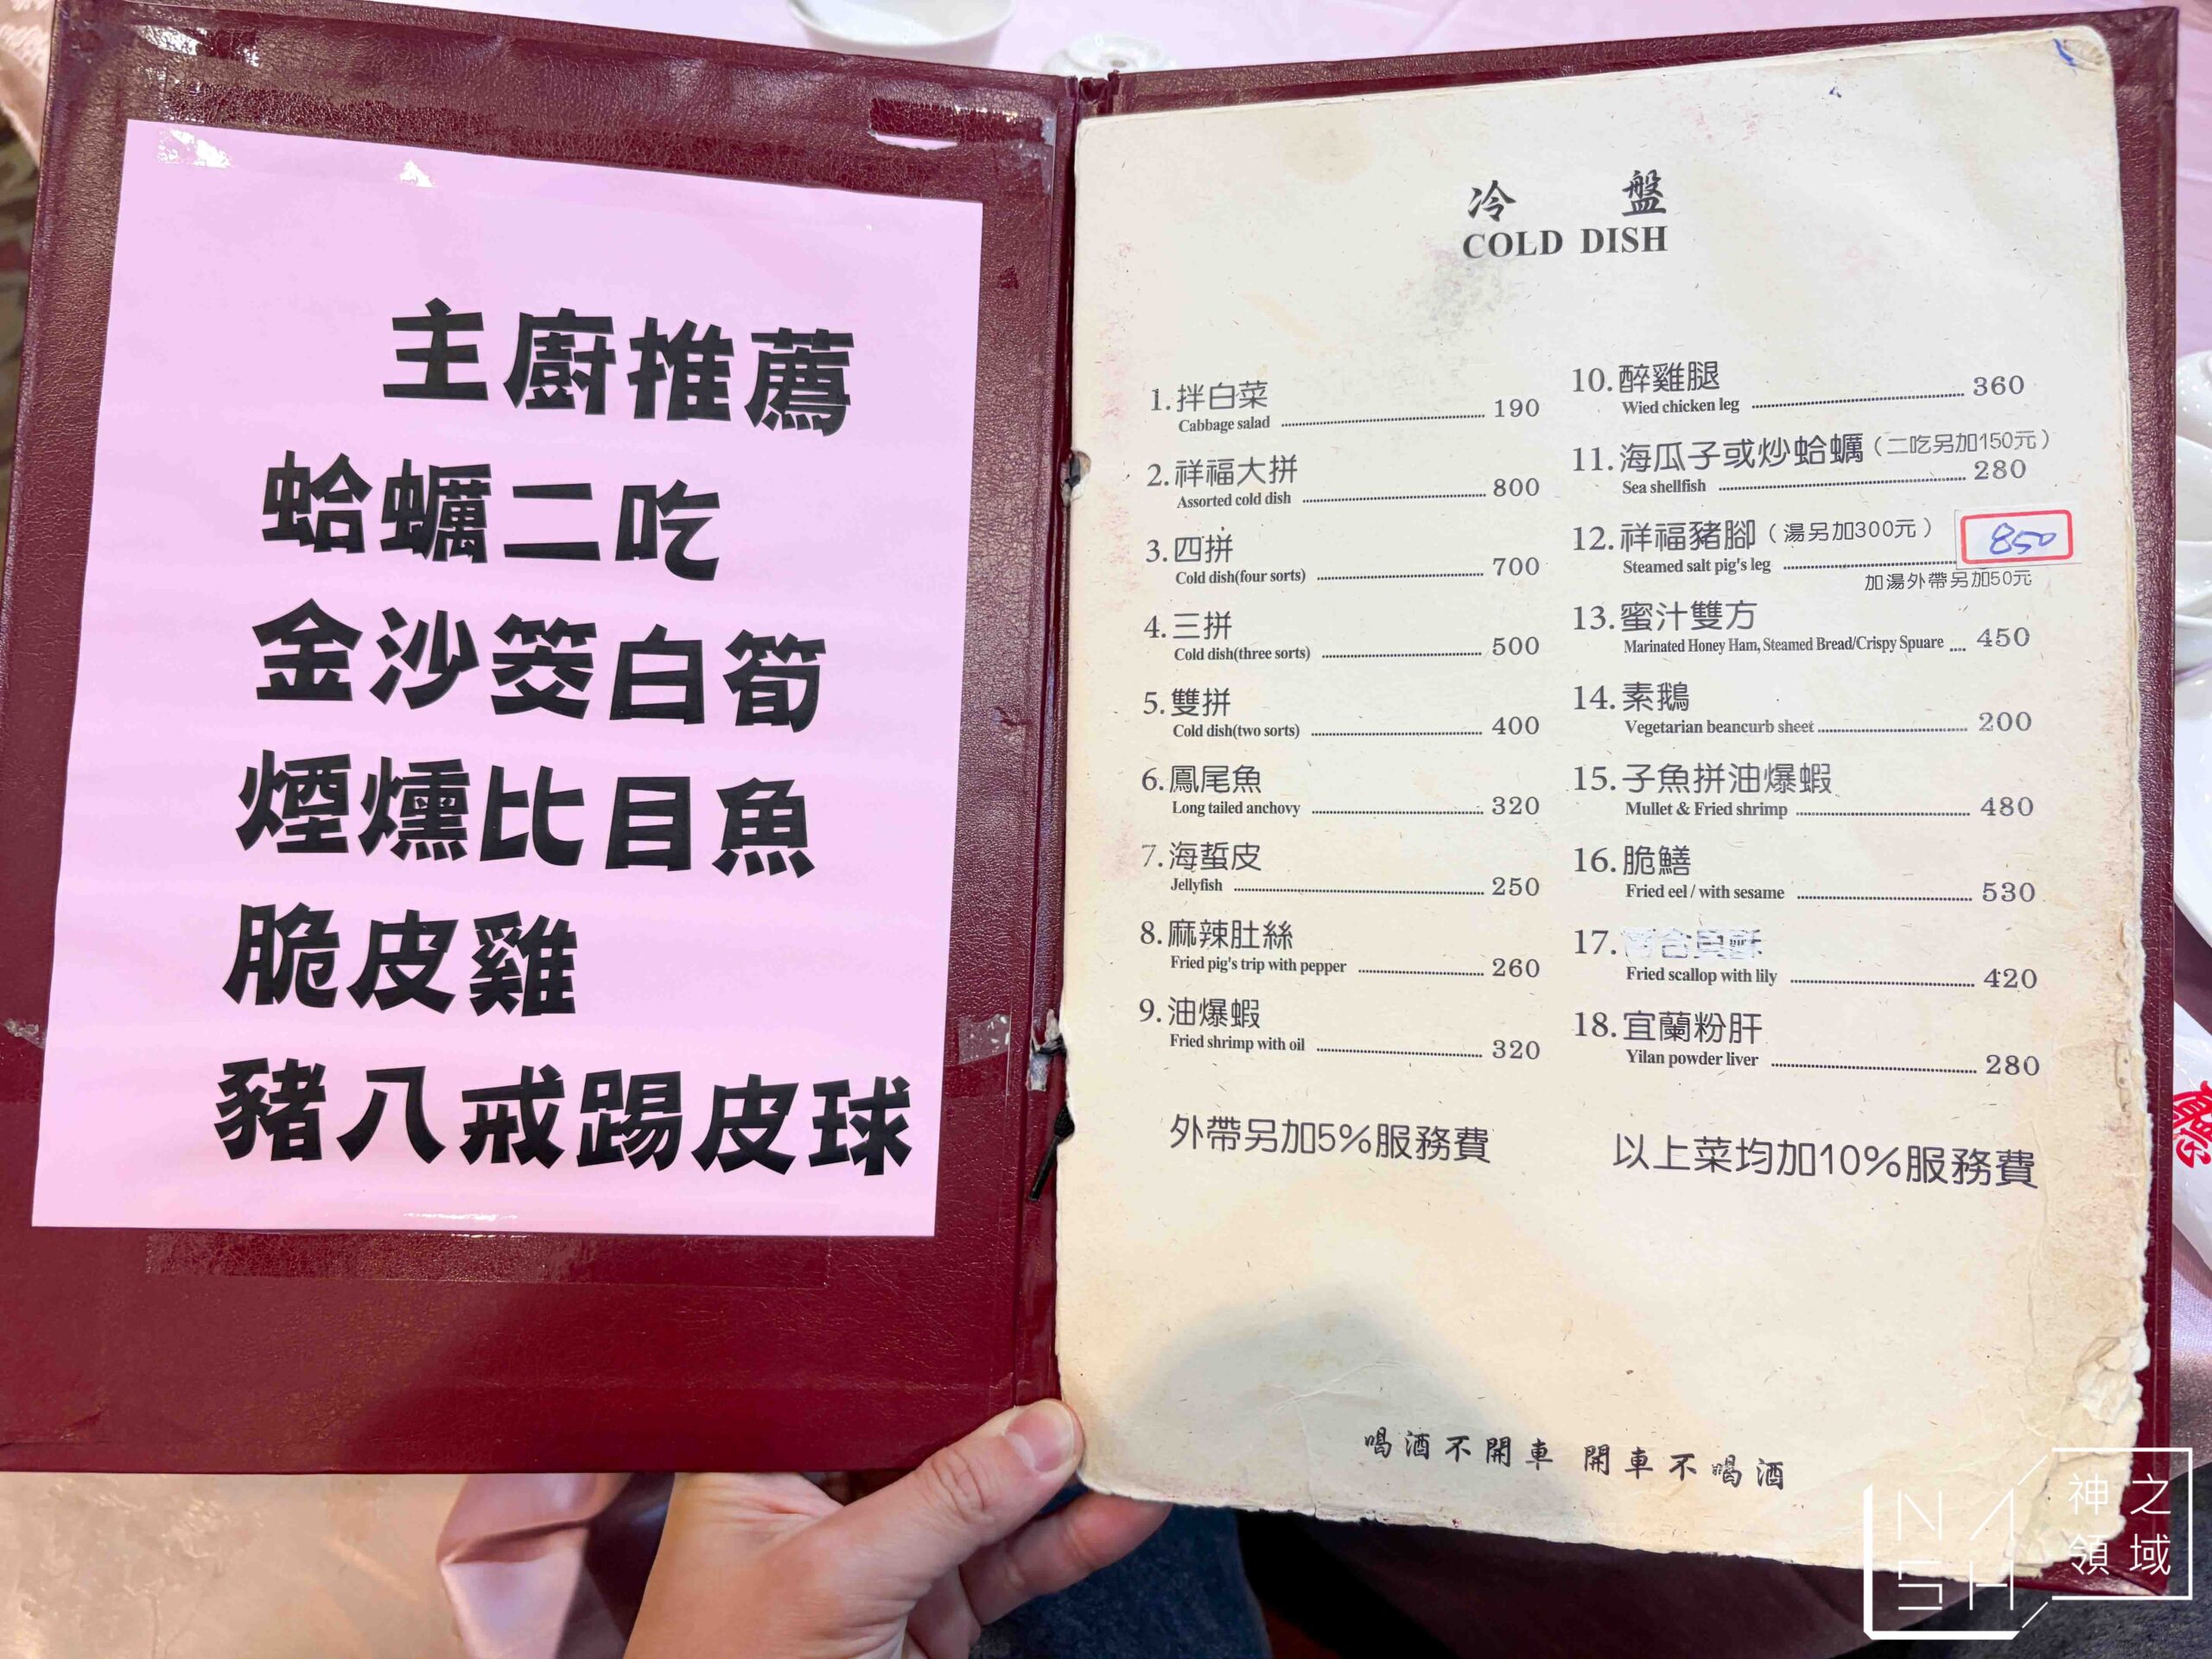 主廚推薦
蛤蠣二吃
金沙筊白筍
煙燻比目魚
脆皮雞
豬八戒踢皮球
冷盤
COLD DISH
1.拌白菜
Cabbage salad 190
2.祥福大拼
Assorted cold dish 800
3.四拼
Cold dish(four sorts) 700
4.三拼
Cold dish(three sorts) 500
5.雙拼
Cold dish(two sorts) 400
6.鳳尾魚
Long tailed anchovy 320
7.海蜇皮
Jellyfish 250
8.麻辣肚絲
Fried pig's trip with pepper 260
9.油爆蝦
Fried shrimp with oil 320
外帶另加5%服務費
10.醉雞腿
Wied chicken leg 360
11.海瓜子或炒蛤蠣（二吃另加150元）
Sea shellfish 280
12.祥福豬腳（湯另加300元） 850
Steamed salt pig's leg
加湯外帶另加50元
13.蜜汁雙方
Marinated Honey Ham, Steamed Bread/Crispy Spuare 450
14.素鵝
Vegetarian beancurb sheet 200
15.子魚拼油爆蝦
Mullet & Fried shrimp 480
16.脆鱔
Fried eel / with sesame 530
17.
Fried scallop with lily 420
18.宜蘭粉肝
Yilan powder liver 280
以上菜均加10%服務費
喝酒不開車 開車不喝酒
NASH
神之領域